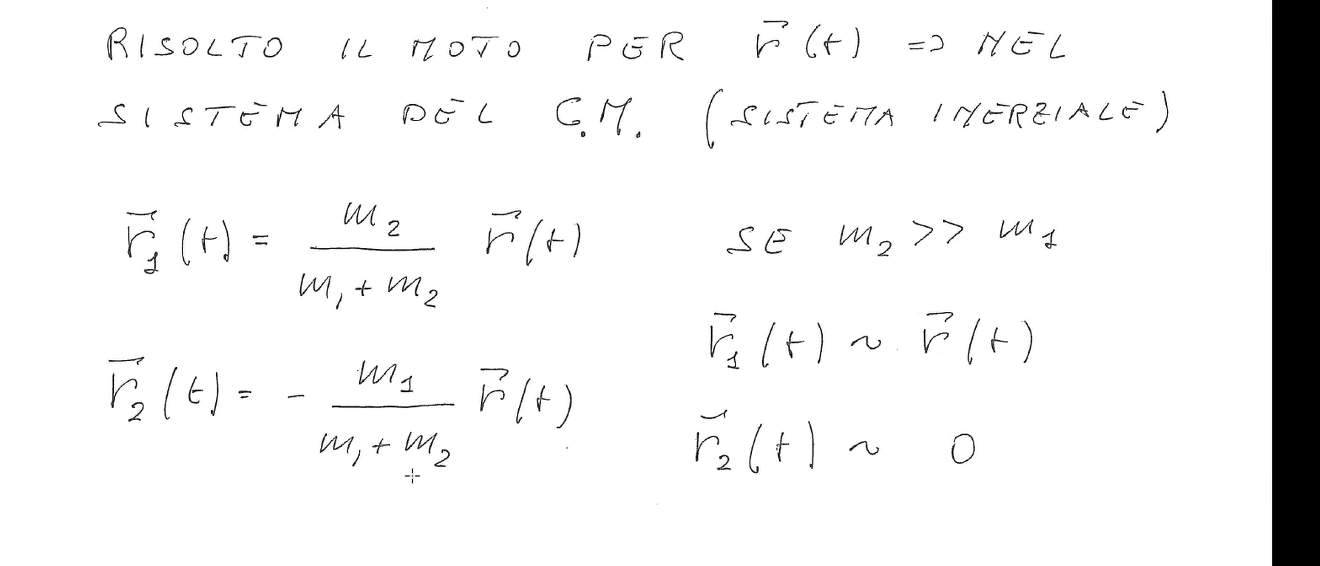 RISOLTO IL MOTO PER r⃗(t) => NEL
SISTEMA DEL C.M. (SISTEMA INERZIALE)
r⃗₁(t) = m₂/(m₁+m₂) r⃗(t)
r⃗₂(t) = - m₁/(m₁+m₂) r⃗(t)
SE m₂ >> m₁
r⃗₁(t) ~ r⃗(t)
r⃗₂(t) ~ 0